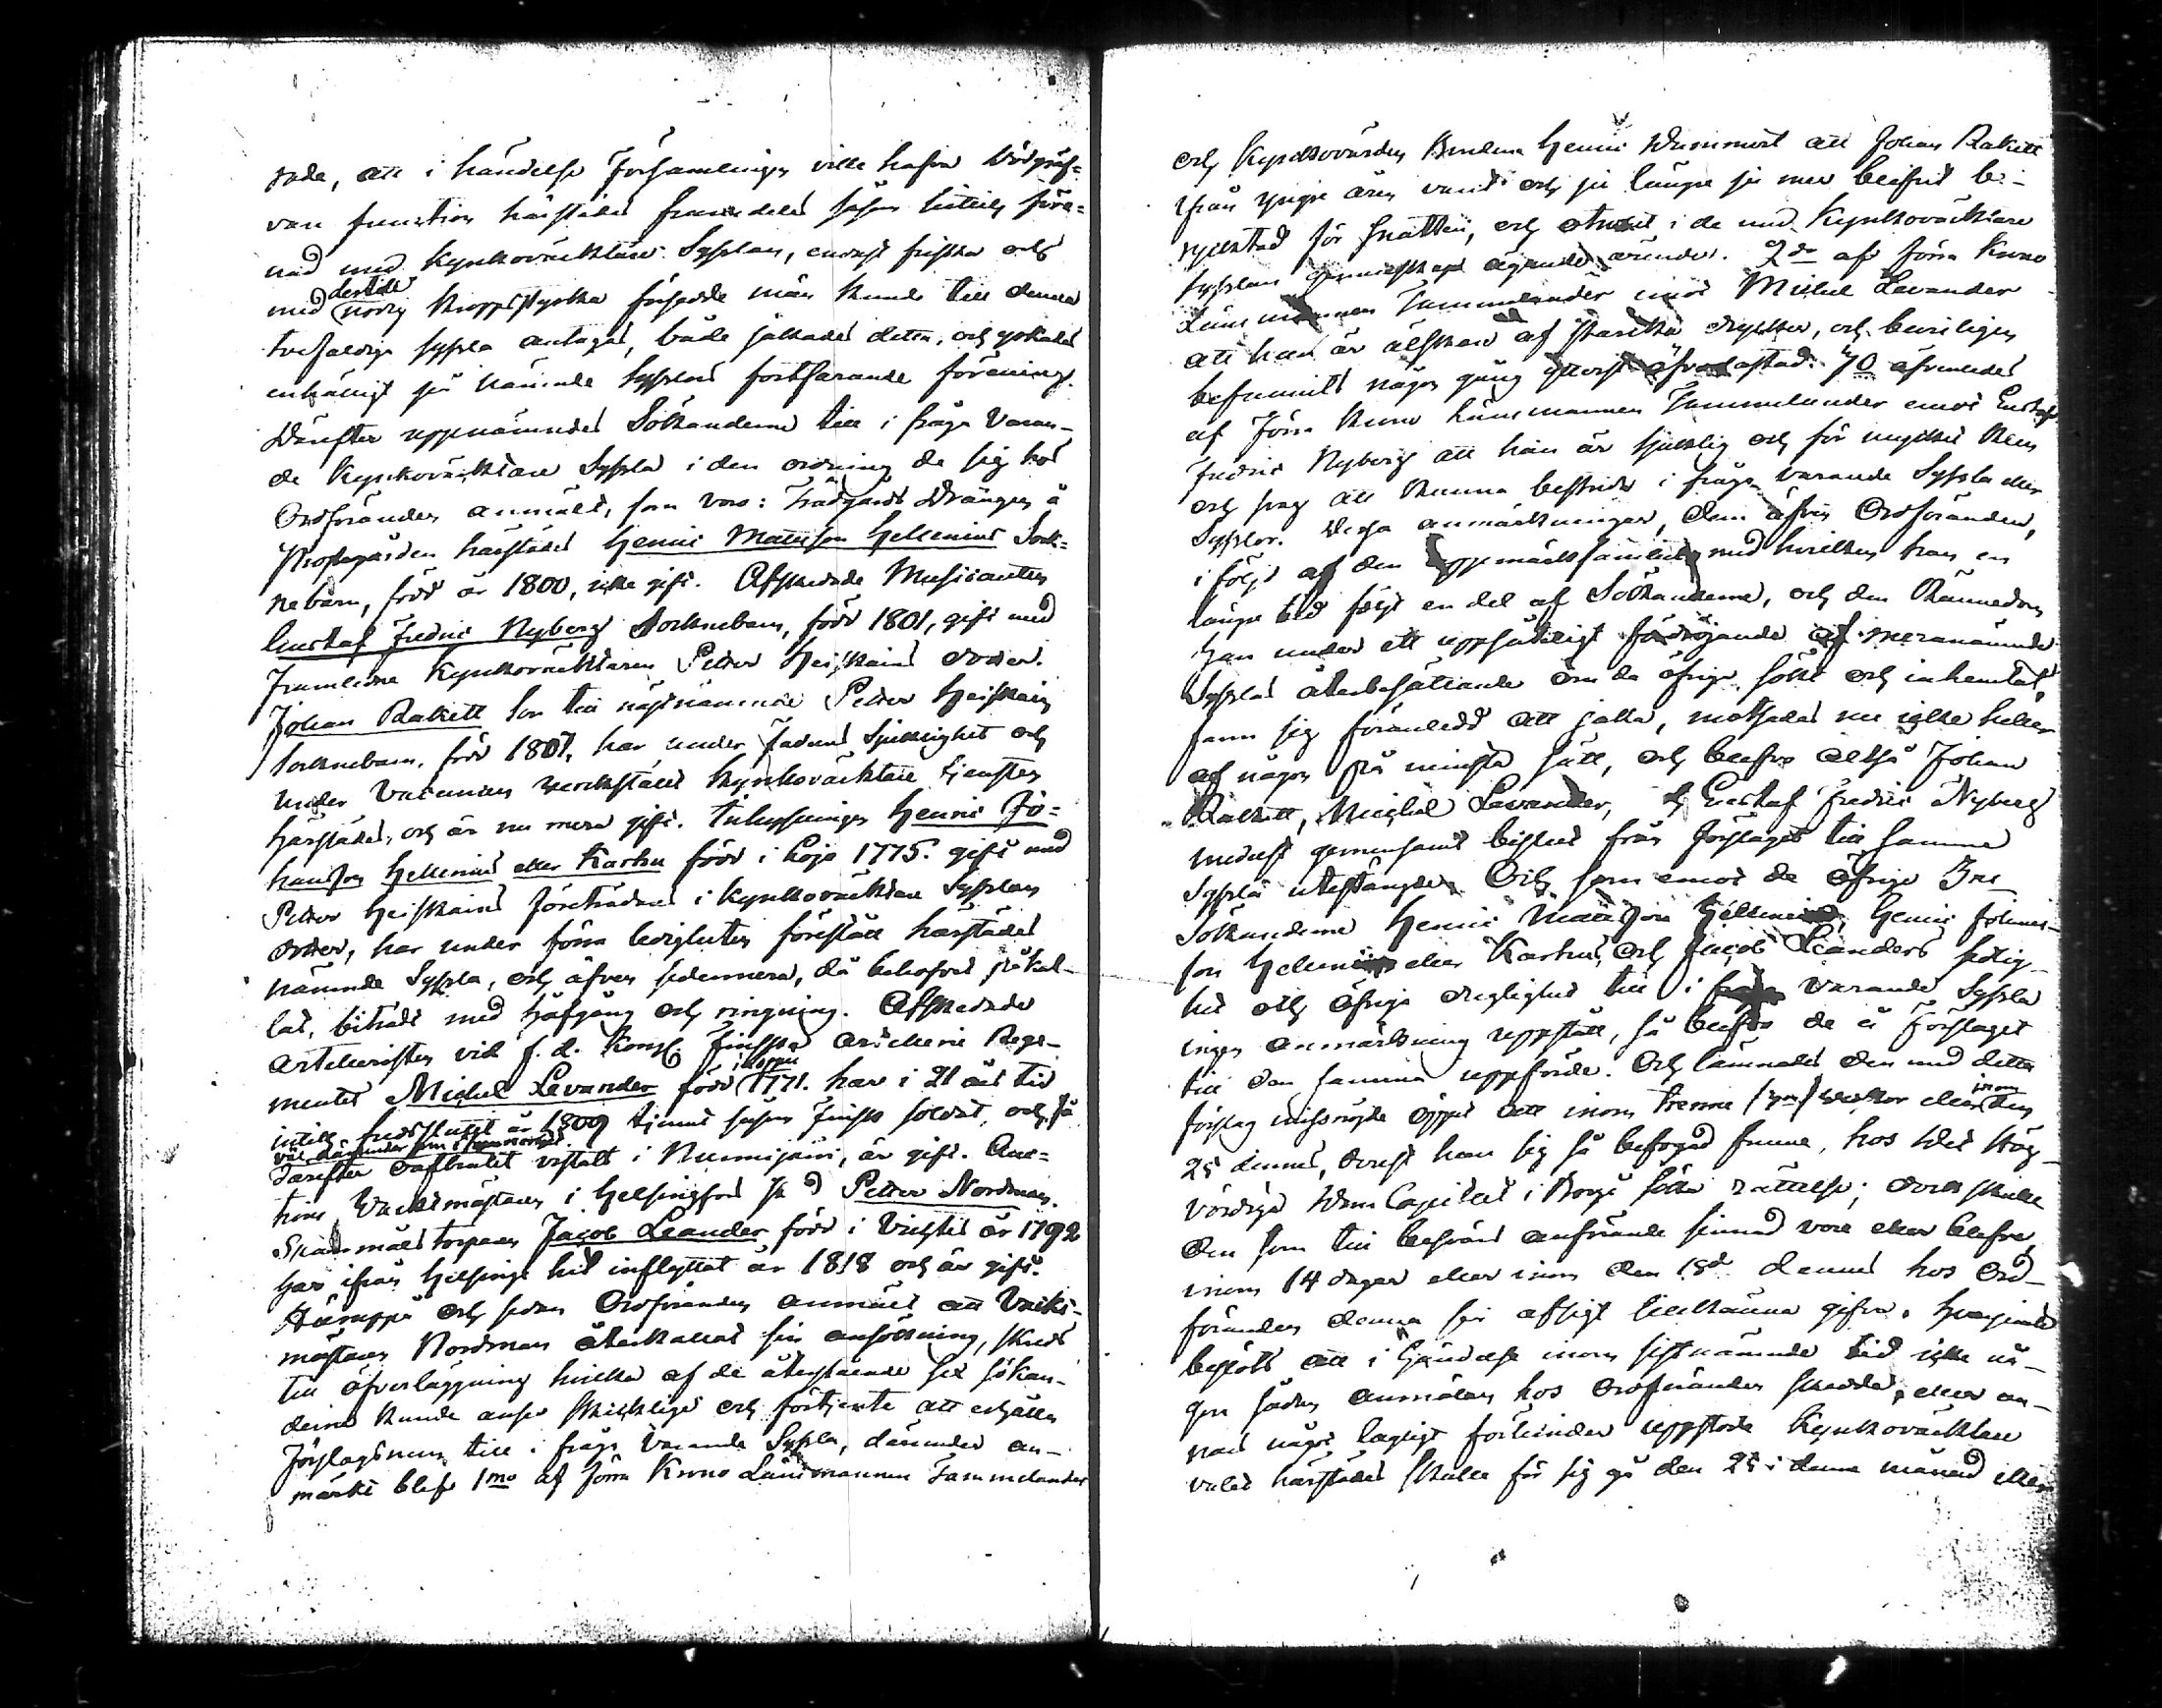 rade, att i händelse Församlingen ville hafva Dödgräf-
van function härstädes framdeles såsom hittils före-
nad med Kyrkoväcktare Sysslan, endast friska och
med dertill nödig kroppsstyrka försedde män kunde till denna
tvefaldiga syssla antagas, både jakades detta, och yrkades
enhälligt på nämnde Sysslors fortfarande förening.
Därefter uppnämndes Sökanderne till i fråga varan-
de Kyrkoväcktare Syssla i den ordning de sig hos
Ordföranden anmält, som voro: Trädgårds Drängen å
Prostgården härstädes Henric Mattsson Hellenius Sock-
nebarn, född år 1800, icke gift. Afskedade Musicanten
Gustaf Fredric Nyberg Socknebarn, född 1801, gift med
Framledne Kyrkoväcktaren Petter Heiskains dotter.
Johan Rakett Son till nästnämnde Petter Heiskain
Socknebarn, född 1807, har under Fadrens Sjuklighet och
under Vacancen verkställt Kyrkoväcktare tjensten
härstädes, och är nu mera gift. Inhyssingen Henric Jo-
hansson Hellenius eller Karhu född i Lojo 1775. gift med
Petter Heiskains företrädares i Kyrkoväcktare Sysslan
dotter, har under förra ledigheten förestått härstädes
nämnde Syssla, och äfven sedermera, då behofvet påkal-
lat, biträdt med håfgång och ringning. Afskedade
Artilleristen vid f. d. Kongl. Finska Artillerie Rege-
mentet Michel Levander född 1771. har i 21 års tid
intill fredsslutet år 1809 tjent såsom Finsk soldat, och så
väl därunder som i
därefter oafbrutit vistats i Nurmijärvi, är gift. Auc-
tions Vacktmästaren i Helsingfors Petter Nordman.
Spannmåls torparen Jacob Leander född i Vichtis år 1792
har ifrån Helsinge hit inflyttat år 1818 och är gift.
Häruppå och sedan Ordföranden anmält att Vackt-
mästaren Nordman återkallat sin ansökning, skreds
till öfverläggning hvilka af de återstående sex sökan-
derne kunde anses skicklige och förtjente att erhålla
Förslagsrum till i fråga varande Syssla, därunder an-
märkt blef 1mo af förra Krono Länsmannen Tammelander
och Kyrkovärden Bonden Henric att Johan Rakett
ifrån yngre åren varit och ju längre ju mer blifvit be-
ryktad för snatteri, och otrohet i de med Kyrkoväcktare
Sysslan gemenskap ägande ärender. 2do af förra Krono
Länsmannen Tammelander emot Michel Levander
att han är älskare af starka drycker, och bevisligen
befunnits någon gång ytterst öfverlastad. 3o äfvenledes
af förra Krono Länsmannen Tammelander emot Gustaf
Fredric Nyberg att han är sjuklig och för mycket klen
och svag att kunna bestrida i fråga varande Syssla eller
Sysslor. Dessa anmärkningar, dem äfven Ordföranden,
i följd af den uppmärksamhet med hvilken han en
längre tid följt en del af Sökanderne, och den kännedom
han under ett uppsåteligt fördröjande af meranämnde
Sysslas återbesättande om de öfrige sökt och inhemtat,
fann sig föranledd att jaka, motsades nu icke heller
af någon på minsta sätt, och blefvo altså Johan
Rakett, Michel Levander, och Gustaf Fredric Nyberg
medelst gemensamt beslut från förslaget till samma
Syssla utestängde. Och som emot de öfrige Tre
Sökanderne Henric Mattsson Hellenius, Henric Johans-
son Hellenius eller Karhu, och Jacob Leanders sedig-
het och öfriga duglighet till i fråga varande Syssla
ingen anmärkning uppstått, så blefvo de å Förslaget
till den samma uppförde. Och lämnades den med detta
förslag missnöjde öppet att inom trenne veckor eller inom den
25 dennes, derest han sig så befogad funne, hos Det Hög-
vördiga DomCapitlet i Borgå söka rättelse; dock skulle
den som till besvärs anförande sinnad vore eller blefve,
inom 14 dagar eller inom den 18de dennes hos Ord-
föranden denna sin afsigt tillkänna gifva. Hvarjemte
beslöts att i händelse inom sistnämnde tid icke nå-
gon sådan anmälan hos Ordföranden skedde, eller an-
nat något lagligt förhinder uppstode Kyrkoväcktare
valet härstädes skulle för sig gå den 25 i denna månad eller